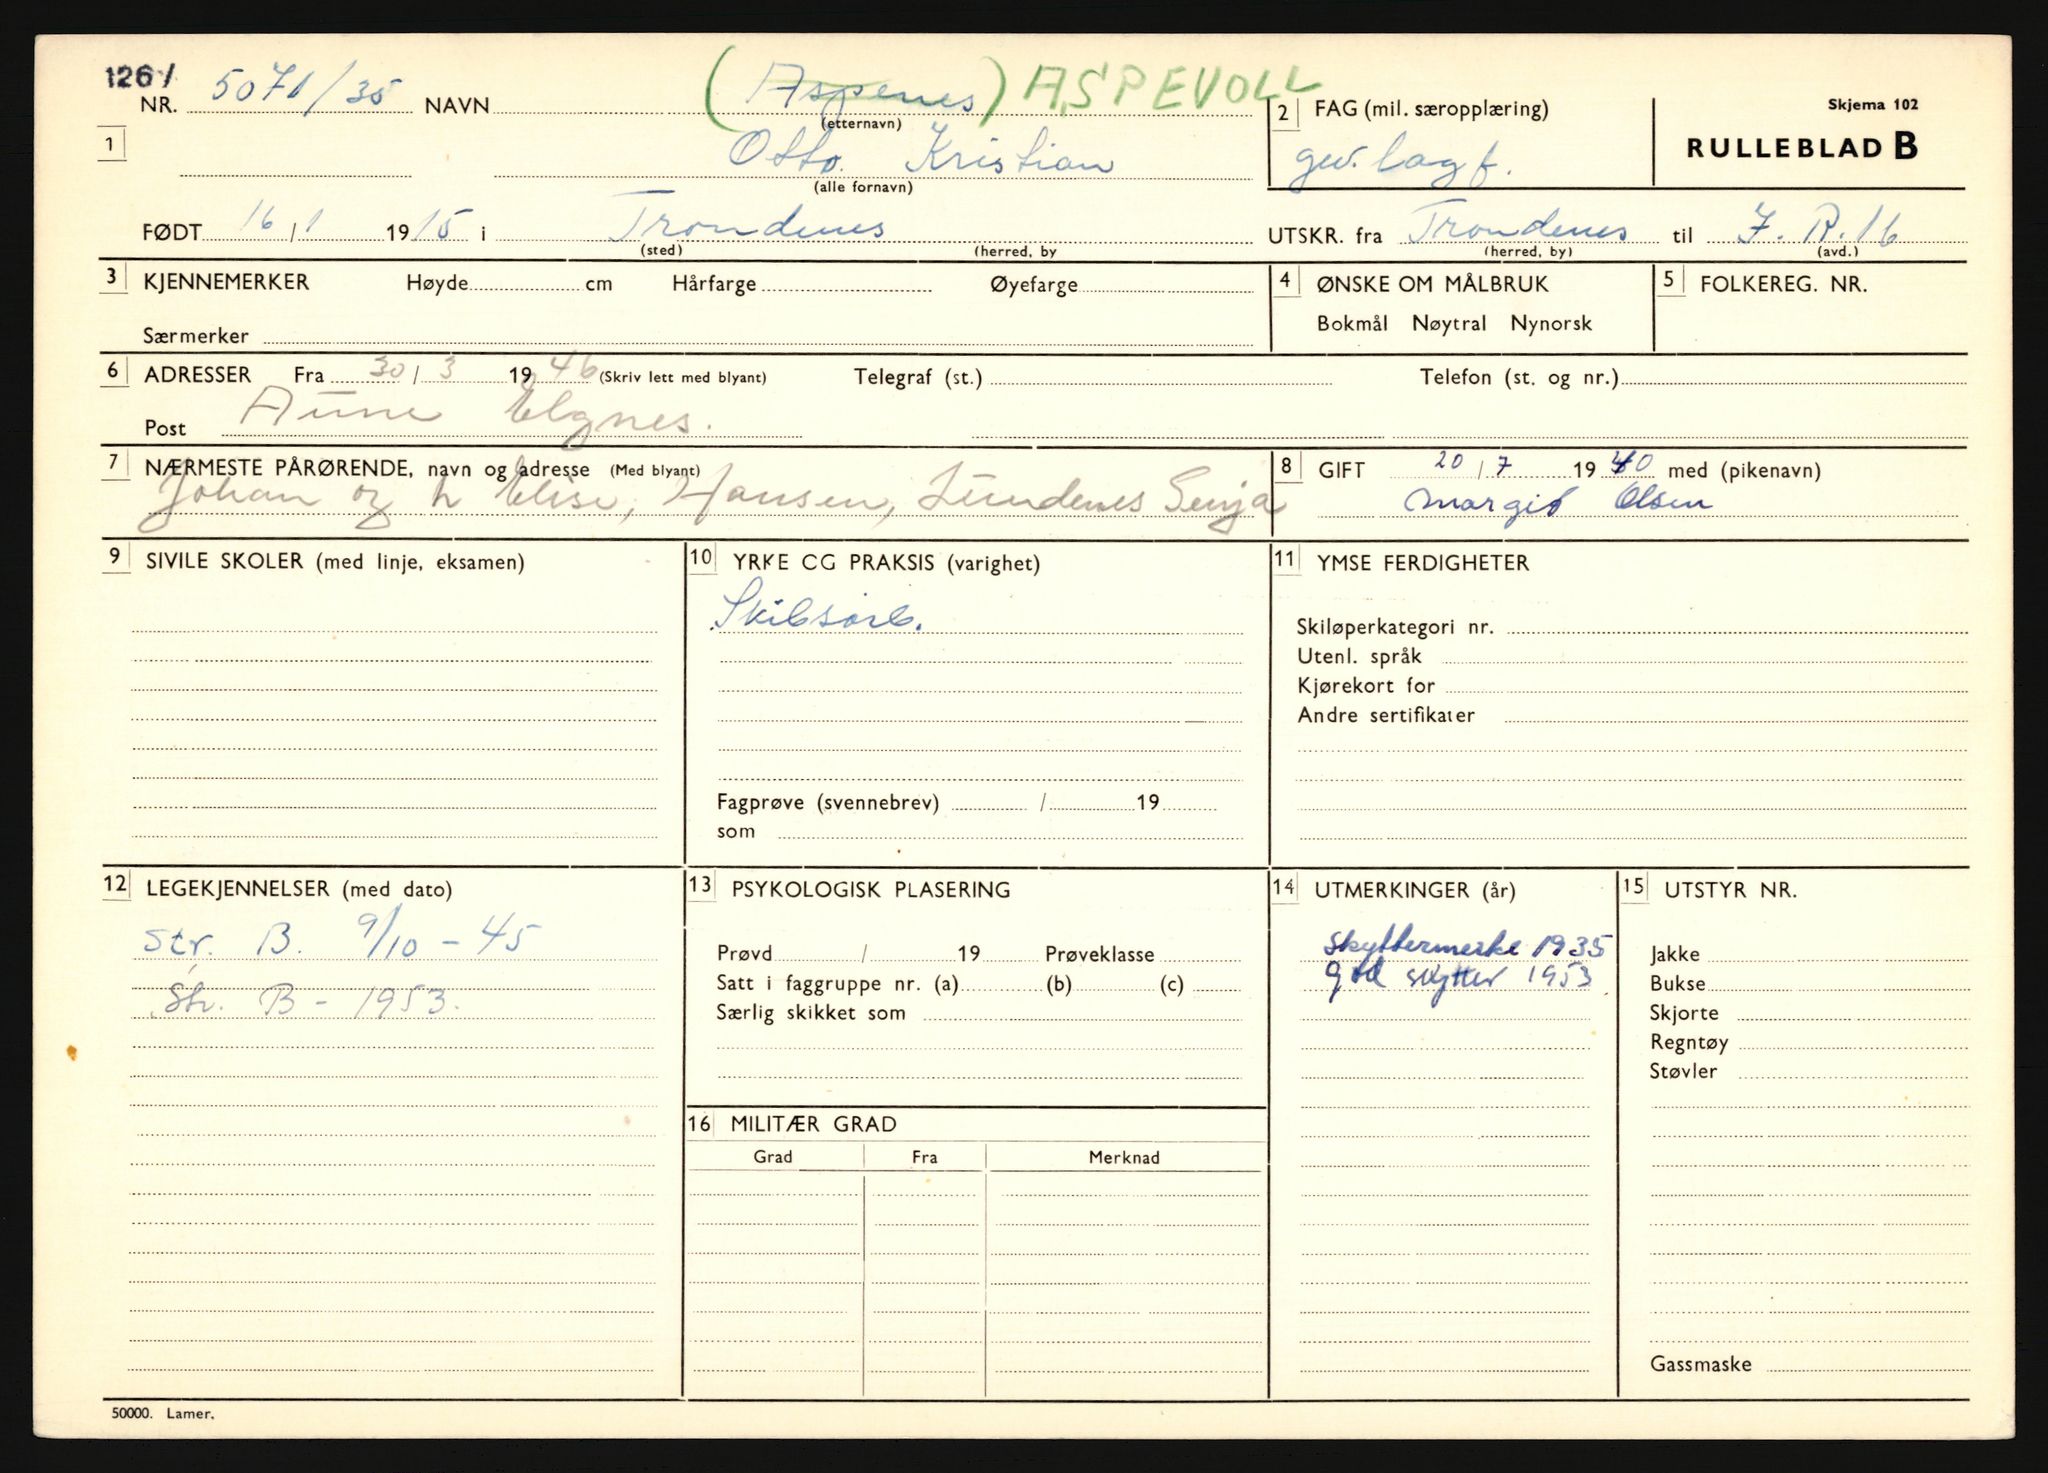 126/
NR. 5071/35 NAVN (Aspenes) ASPEVOLL
(etternavn)
1
Otto. Kristian
(alle fornavn)
FØDT 16/1 1915 i Trondenes
(sted) (herred, by
2 FAG (mil. særopplæring)
gev. lagf.
Skjema 102
RULLEBLAD B
UTSKR. fra Trondenes til I.R. 16
(herred, by) (avd.)
3 KJENNEMERKER Høyde cm Hårfarge Øyefarge
Særmerker
4 ØNSKE OM MÅLBRUK
Bokmål Nøytral Nynorsk
5 FOLKEREG. NR.
6 ADRESSER Fra 30/3 1946 (Skriv lett med blyant) Telegraf (st.) Telefon (st. og nr.)
Post Aune Elgnes.
7 NÆRMESTE PÅRØRENDE, navn og adresse (Med blyant)
Johan og h Elise, Hansen, Lundenes Senja
8 GIFT 20/7 1940 med (pikenavn)
Margit Olsen
9 SIVILE SKOLER (med linje, eksamen)
10 YRKE CG PRAKSIS (varighet)
Skibsarb.
Fagprøve (svennebrev) / 19
som
11 YMSE FERDIGHETER
Skiløperkategori nr.
Utenl. språk
Kjørekort for
Andre sertifikater
12 LEGEKJENNELSER (med dato)
Str. B. 9/10 - 45
Str. B - 1953.
13 PSYKOLOGISK PLASERING
Prøvd / 19 Prøveklasse
Satt i faggruppe nr. (a) (b) (c)
Særlig skikket som
14 UTMERKINGER (år)
Skyttermerke 1935
god skytter 1953
15 UTSTYR NR.
Jakke
Bukse
Skjorte
Regntøy
Støvler
Gassmaske
16 MILITÆR GRAD
Grad Fra Merknad
50000. Lamer.